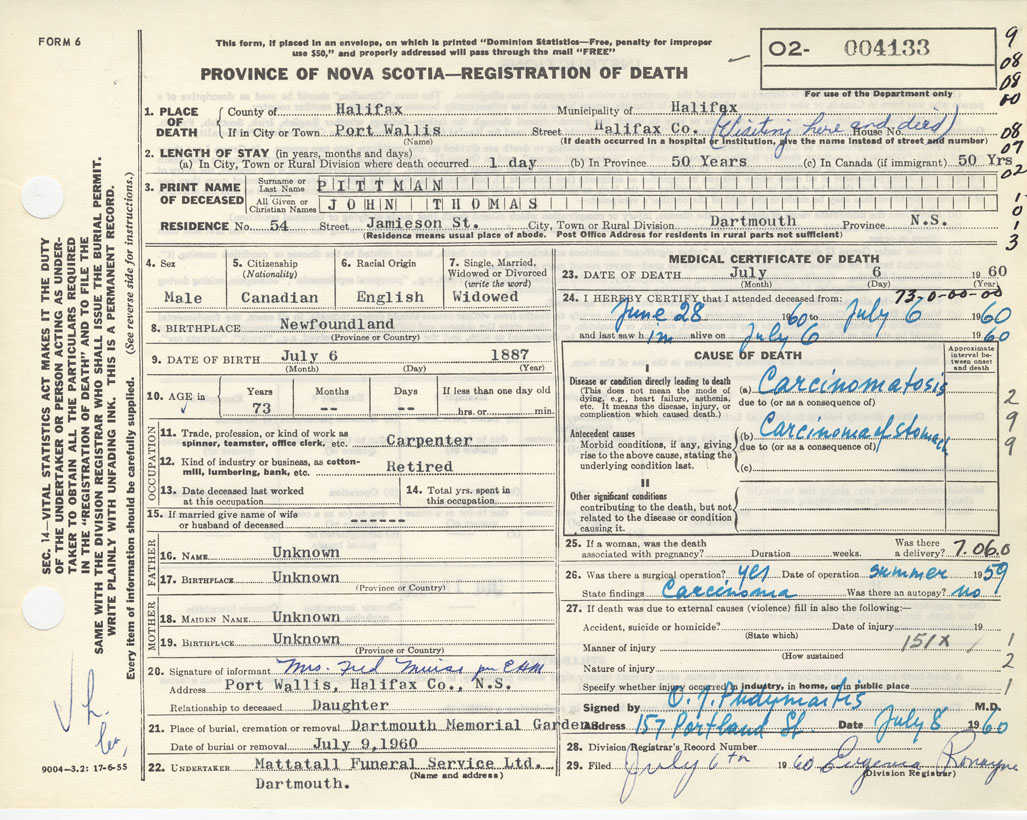 FORM 6
This form, if placed in an envelope, on which is printed "Dominion Statistics—Free, penalty for improper
use $50," and properly addressed will pass through the mail "FREE"
PROVINCE OF NOVA SCOTIA—REGISTRATION OF DEATH
O2- 004133
For use of the Department only
9
08
08
00
08
07
02
1
0
1
3
1. PLACE OF DEATH
County of Halifax Municipality of Halifax
If in City or Town Port Wallis Street Halifax Co. (Visiting here and died) House No.
(Name) (If death occurred in a hospital or institution, give the name instead of street and number)
2. LENGTH OF STAY (in years, months and days)
(a) In City, Town or Rural Division where death occurred 1 day (b) In Province 50 Years (c) In Canada (if immigrant) 50 Yrs
3. PRINT NAME OF DECEASED
Surname or Last Name PITTMAN
All Given or Christian Names JOHN THOMAS
RESIDENCE No. 54 Street Jamieson St. City, Town or Rural Division Dartmouth Province N.S.
(Residence means usual place of abode. Post Office Address for residents in rural parts not sufficient)
4. Sex
Male
5. Citizenship
(Nationality)
Canadian
6. Racial Origin
English
7. Single, Married,
Widowed or Divorced
(write the word)
Widowed
8. BIRTHPLACE Newfoundland
(Province or Country)
9. DATE OF BIRTH July 6 1887
(Month) (Day) (Year)
10. AGE in
Years
73
Months
--
Days
--
If less than one day old
hrs. or min.
OCCUPATION
11. Trade, profession, or kind of work as
spinner, teamster, office clerk, etc. Carpenter
12. Kind of industry or business, as cotton-
mill, lumbering, bank, etc. Retired
13. Date deceased last worked
at this occupation
14. Total yrs. spent in
this occupation
15. If married give name of wife
or husband of deceased ------
FATHER
16. NAME Unknown
17. BIRTHPLACE Unknown
(Province or Country)
MOTHER
18. MAIDEN NAME Unknown
19. BIRTHPLACE Unknown
(Province or Country)
20. Signature of informant Mrs. Fred
Address Port Wallis, Halifax Co., N.S.
Relationship to deceased Daughter
21. Place of burial, cremation or removal Dartmouth Memorial Gardens
Date of burial or removal July 9,1960
22. UNDERTAKER Mattatall Funeral Service Ltd.
(Name and address)
Dartmouth.
MEDICAL CERTIFICATE OF DEATH
23. DATE OF DEATH July 6 1960
(Month) (Day) (Year)
24. I HEREBY CERTIFY that I attended deceased from: 73-0-00-00
June 28 1960 to July 6 1960
and last saw him alive on July 6 1960
CAUSE OF DEATH
Approximate
interval be-
tween onset
and death
I
Disease or condition directly leading to death
(This does not mean the mode of
dying, e.g., heart failure, asthenia,
etc. It means the disease, injury, or
complication which caused death.)
(a) Carcinomatosis
due to (or as a consequence of)
Antecedent causes
Morbid conditions, if any, giving
rise to the above cause, stating the
underlying condition last.
(b) Carcinoma of stomach
due to (or as a consequence of)
(c)
2
9
9
II
Other significant conditions
contributing to the death, but not
related to the disease or condition
causing it.
25. If a woman, was the death
associated with pregnancy? Duration weeks. Was there
a delivery? 7.06.0
26. Was there a surgical operation? yes Date of operation summer 1959
State findings Carcinoma Was there an autopsy? no
27. If death was due to external causes (violence) fill in also the following:—
Accident, suicide or homicide? Date of injury 19
(State which)
Manner of injury 151X 1
(How sustained
Nature of injury 2
Specify whether injury occurred in industry, in home, or in public place 1
Signed by O. J. Pudymaitis M.D.
Address 157 Portland St. Date July 8 1960
28. Division Registrar's Record Number
29. Filed July 6th 1960 Eugenia Ronayne
(Division Registrar)
SEC. 14—VITAL STATISTICS ACT MAKES IT THE DUTY
OF THE UNDERTAKER OR PERSON ACTING AS UNDER-
TAKER TO OBTAIN ALL THE PARTICULARS REQUIRED
IN THE "REGISTRATION OF DEATH" AND TO FILE THE
SAME WITH THE DIVISION REGISTRAR WHO SHALL ISSUE THE BURIAL PERMIT.
WRITE PLAINLY WITH UNFADING INK. THIS IS A PERMANENT RECORD.
Every item of information should be carefully supplied. (See reverse side for instructions.)
9004-3.2: 17-6-55